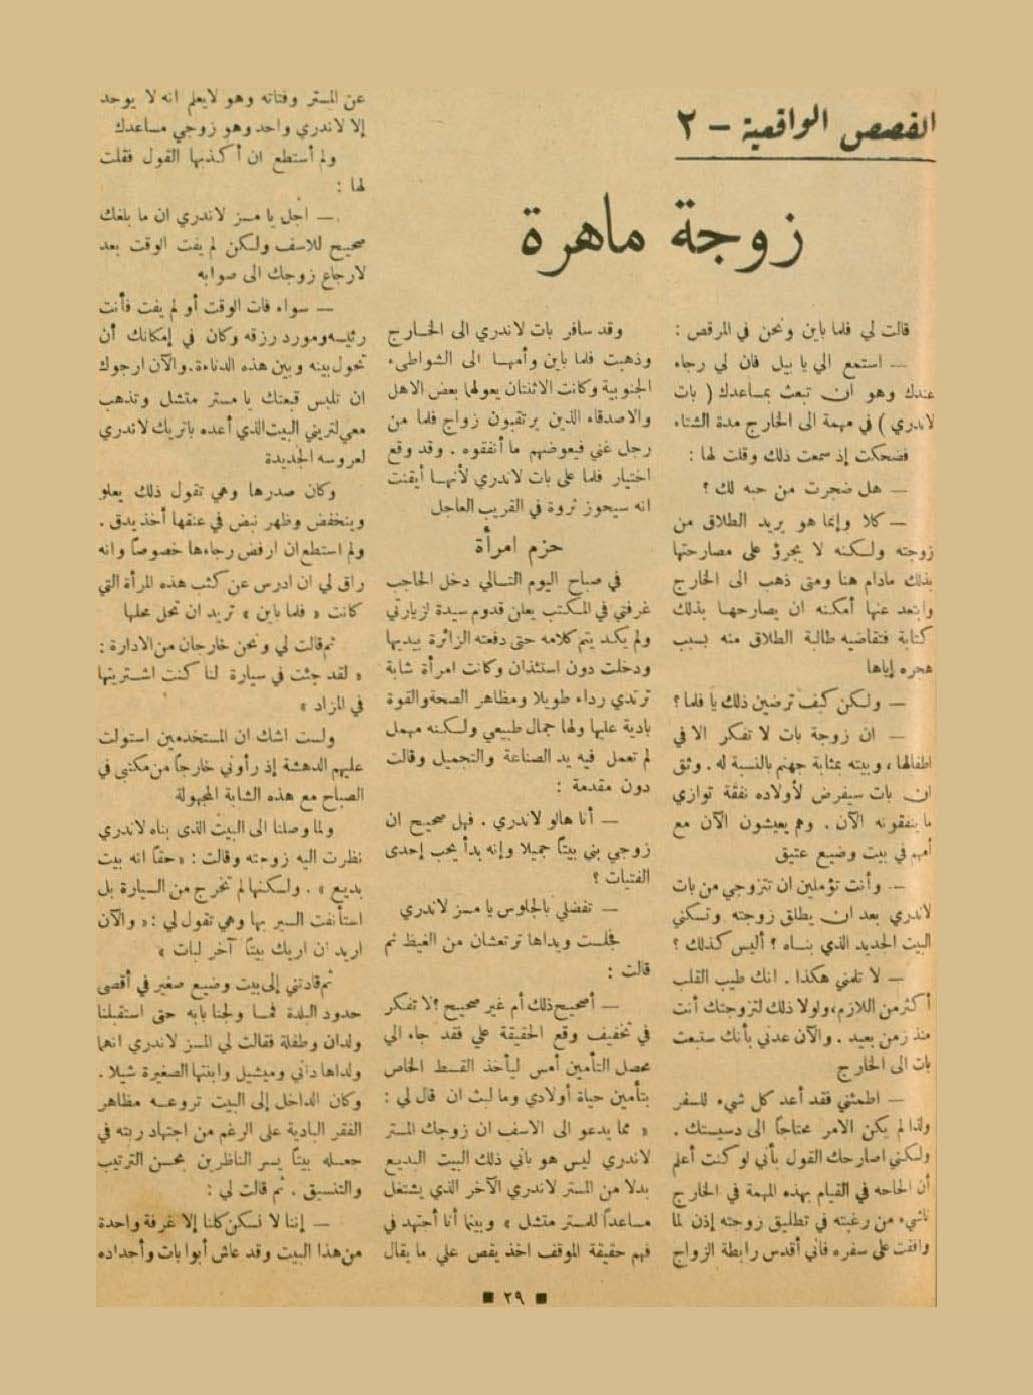 القصص الواقعية – ٢
زوجة ماهرة
قالت لي فلما باين ونحن في المرقص :
— استمع الي يا بيل فان لي رجاء
عندك وهو ان تبعث بمساعدك ( بات
لاندري ) في مهمة الى الخارج مدة الشتاء
فضحكت إذ سمعت ذلك وقلت لها :
— هل ضجرت من حبه لك ؟
— كلا وإنما هو يريد الطلاق من
زوجته ولكنه لا يجرؤ على مصارحتها
بذلك مادام هنا ومتى ذهب الى الخارج
وابتعد عنها أمكنه ان يصارحها بذلك
كتابة فتقاضيه طالبة الطلاق منه بسبب
هجره إياها
— ولكن كيف ترضين ذلك يا فلما ؟
— ان زوجة بات لا تفكر الا في
اطفالها ، وبيته بمثابة جهنم بالنسبة له . وثق
ان بات سيفرض لأولاده نفقة توازي
ما ينفقونه الآن . وهم يعيشون الآن مع
أمهم في بيت وضيع عتيق
— وأنت تؤملين ان تتزوجي من بات
لاندري بعد ان يطلق زوجته وتسكني
البيت الجديد الذي بناه ؟ أليس كذلك ؟
— لا تلمني هكذا . انك طيب القلب
أكثر من اللازم ، ولولا ذلك لتزوجتك أنت
منذ زمن بعيد . والآن عدني بأنك ستبعث
بات الى الخارج
— اطمئني فقد أعد كل شيء للسفر
ولذا لم يكن الامر محتاجاً الى دسيستك .
ولكني اصارحك القول بأني لو كنت أعلم
أن الحاحه في القيام بهذه المهمة في الخارج
ناشيء من رغبته في تطليق زوجته إذن لما
وافقت على سفره فاني أقدس رابطة الزواج
وقد سافر بات لاندري الى الخارج
وذهبت فلما باين وأمها الى الشواطىء
الجنوبية وكانت الاثنتان يعولهما بعض الاهل
والاصدقاء الذين يرتقبون زواج فلما من
رجل غني فيعوضهم ما أنفقوه . وقد وقع
اختيار فلما على بات لاندري لأنها أيقنت
انه سيحوز ثروة في القريب العاجل
حزم امرأة
في صباح اليوم التالي دخل الحاجب
غرفتي في المكتب يعلن قدوم سيدة لزيارتي
ولم يكد يتم كلامه حتى دفعته الزائرة بيديها
ودخلت دون استئذان وكانت امرأة شابة
ترتدي رداء طويلا ومظاهر الصحة والقوة
بادية عليها ولها جمال طبيعي ولكنه مهمل
لم تعمل فيه يد الصناعة والتجميل وقالت
دون مقدمة :
— أنا هالو لاندري . فهل صحيح ان
زوجي بني بيتاً جميلا وإنه بدأ يحب إحدى
الفتيات ؟
— تفضلي بالجلوس يا مسز لاندري
فجلست ويداها ترتعشان من الغيظ ثم
قالت :
— أصحيح ذلك أم غير صحيح ؟ لا تفكر
في تخفيف وقع الحقيقة علي فقد جاء الي
محصل التأمين أمس ليأخذ القسط الخاص
بتأمين حياة أولادي وما لبث ان قال لي :
« مما يدعو الى الاسف ان زوجك المستر
لاندري ليس هو باني ذلك البيت البديع
بدلا من المستر لاندري الآخر الذي يشتغل
مساعداً للمستر متشل » وبينما أنا أجتهد في
فهم حقيقة الموقف اخذ يقص علي ما يقال
عن المستر وفتاته وهو لا يعلم انه لا يوجد
إلا لاندري واحد وهو زوجي مساعدك
ولم أستطع ان أكذبها القول فقلت
لها :
— اجل يا مسز لاندري ان ما بلغك
صحيح للاسف ولكن لم يفت الوقت بعد
لارجاع زوجك الى صوابه
— سواء فات الوقت أو لم يفت فأنت
رئيسه ومورد رزقه وكان في إمكانك أن
تحول بينه وبين هذه الدناءة . والآن ارجوك
ان تلبس قبعتك يا مستر متشل وتذهب
معي لتريني البيت الذي أعده باتريك لاندري
لعروسه الجديدة
وكان صدرها وهي تقول ذلك يعلو
وينخفض وظهر نبض في عنقها أخذ يدق .
ولم استطع ان ارفض رجاءها خصوصاً وانه
راق لي ان ادرس عن كثب هذه المرأة التي
كانت « فلما باين » تريد ان تحل محلها
ثم قالت لي ونحن خارجان من الادارة :
« لقد جئت في سيارة لنا كنت اشتريتها
في المزاد »
ولست اشك ان المستخدمين استولت
عليهم الدهشة إذ رأوني خارجاً من مكتبي في
الصباح مع هذه الشابة المجهولة
ولما وصلنا الى البيت الذي بناه لاندري
نظرت اليه زوجته وقالت : « حقاً انه بيت
بديع » . ولكنها لم تخرج من السيارة بل
استأنفت السير بها وهي تقول لي : « والآن
اريد ان اريك بيتاً آخر لبات »
ثم قادتني إلى بيت وضيع صغير في أقصى
حدود البلدة فما ولجنا بابه حتى استقبلنا
ولدان وطفلة فقالت لي المسز لاندري انهما
ولداها داني وميشيل وابنتها الصغيرة شيلا .
وكان الداخل إلى البيت تروعه مظاهر
الفقر البادية على الرغم من اجتهاد ربته في
جعله بيتاً يسر الناظرين بحسن الترتيب
والتنسيق . ثم قالت لي :
— إننا لا نسكن كلنا إلا غرفة واحدة
من هذا البيت وقد عاش أبوا بات وأجداده
■ ٢٩ ■